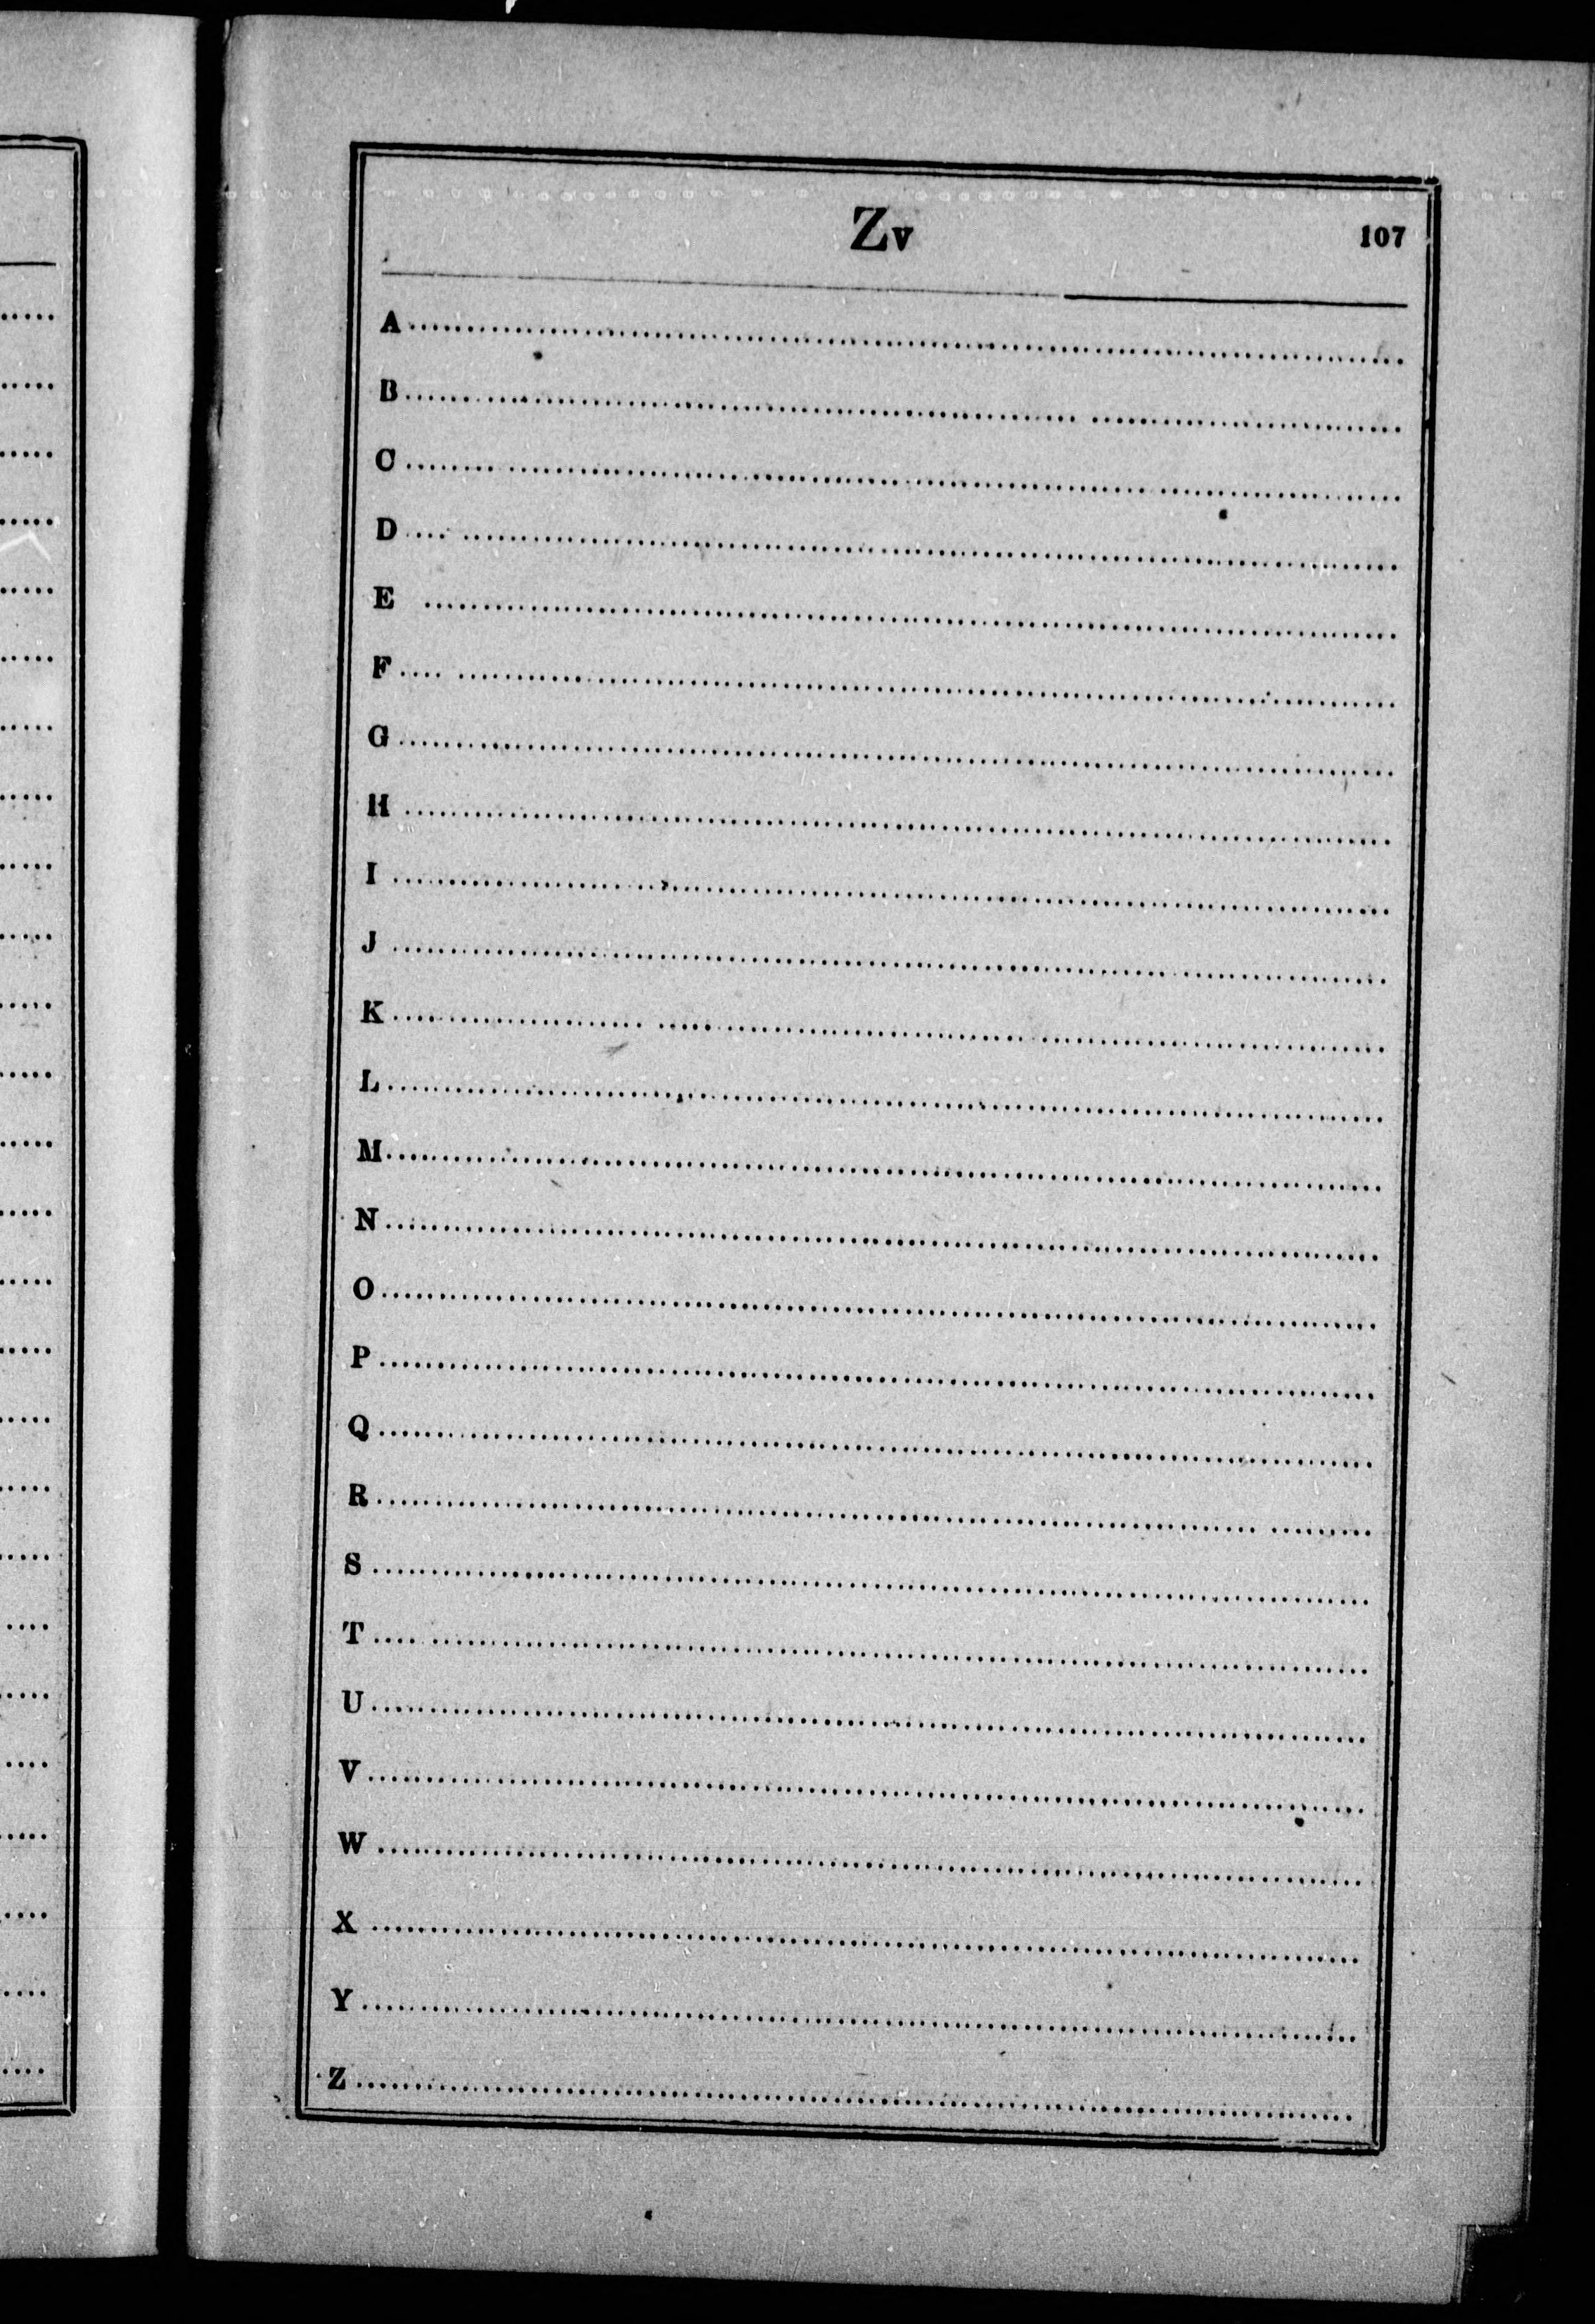 Zv 107
A
B
C
D
E
F
G
H
I
J
K
L
M
N
O
P
Q
R
S
T
U
V
W
X
Y
Z